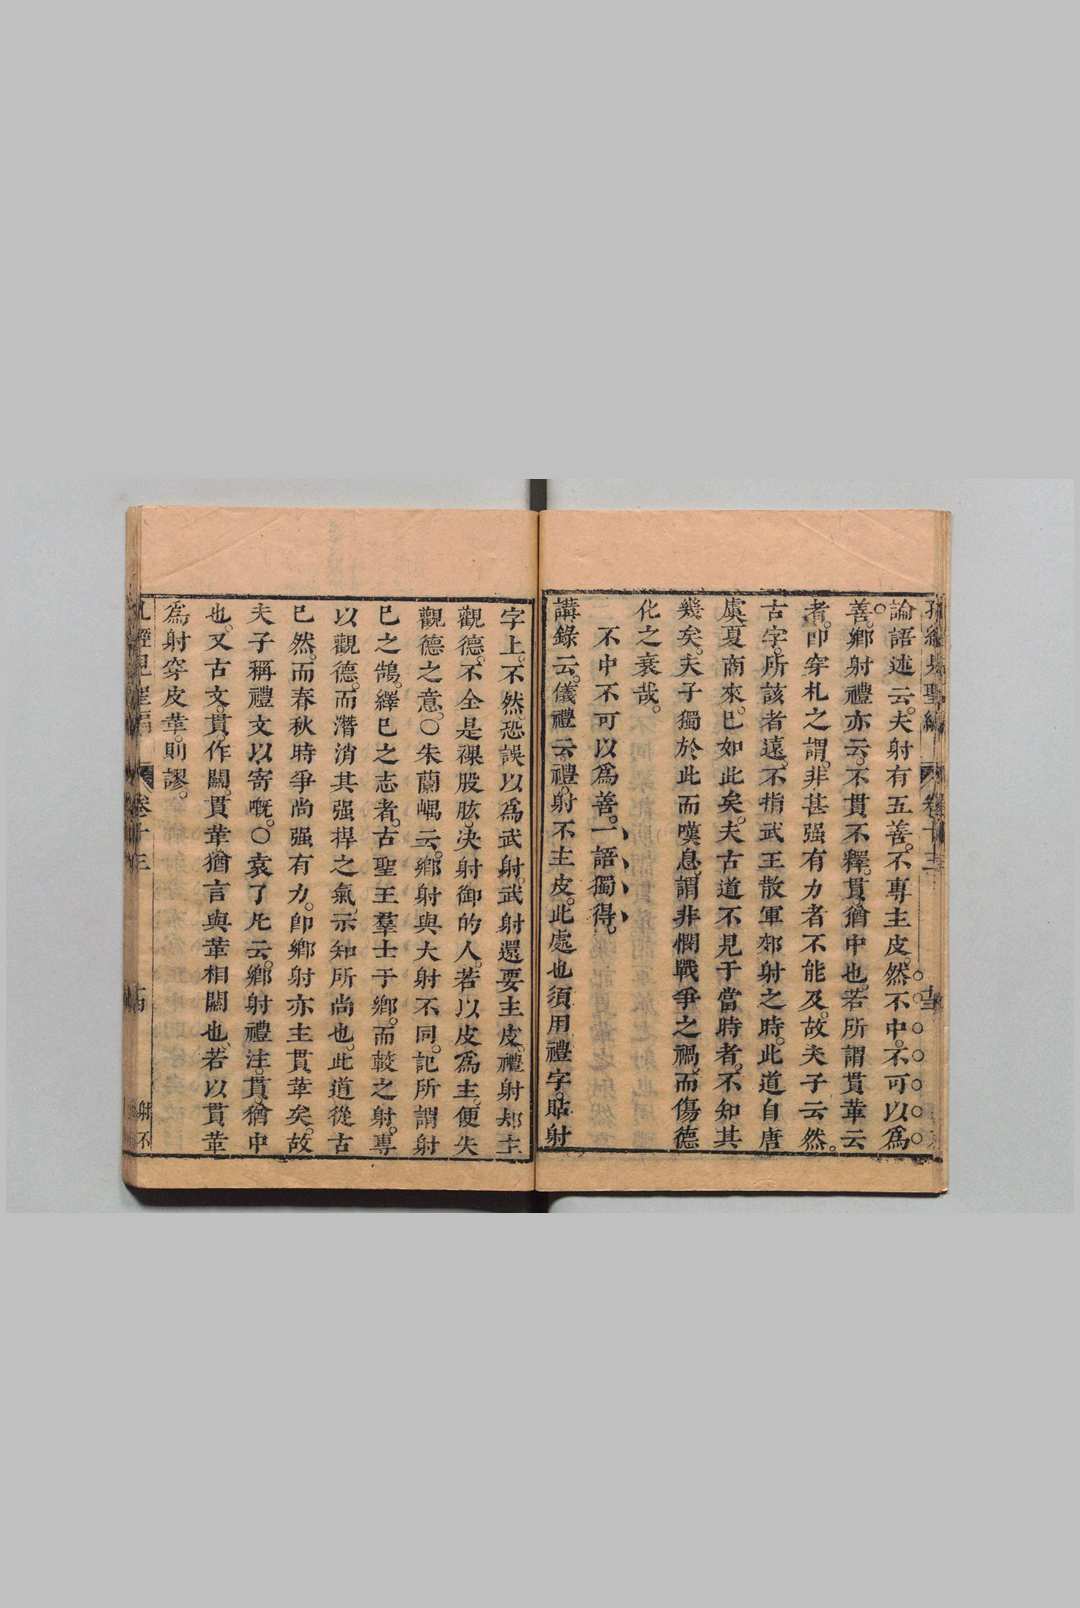 論語述云。夫射有五善。不專主皮。然不中。不可以為
善。鄉射禮亦云。不貫不釋。貫猶中也。若所謂貫革云
者。卽穿札之謂。非甚强有力者不能及。故夫子云然。
古字。所該者遠。不指武王散軍郊射之時。此道自唐
虞夏商來。已如此矣。夫古道不見于當時者。不知其
幾矣。夫子獨於此而嘆息。謂非憫戰爭之禍。而傷德
化之衰哉。
不中不可以為善。一語獨得。
講錄云。儀禮云。禮射不主皮。此處也須用禮字。貼射
字上。不然。恐誤以為武射。武射還要主皮。禮射却主
觀德。不全是裸股肱。决射御的人。若以皮為主。便失
觀德之意。〇朱蘭嵎云。鄉射與大射不同。記所謂射
巳之鵠。繹巳之志者。古聖王羣士于鄉。而較之射。專
以觀德。而潛消其强捍之氣。示知所尚也。此道從古
已然。而春秋時爭尚强有力。卽鄉射亦主貫革矣。故
夫子稱禮文以寄嘅。〇袁了凡云。鄉射禮注。貫。猶中
也。又古文。貫作關。貫革。猶言與革相關也。若以貫革
為射穿皮革。則謬。
卷十三